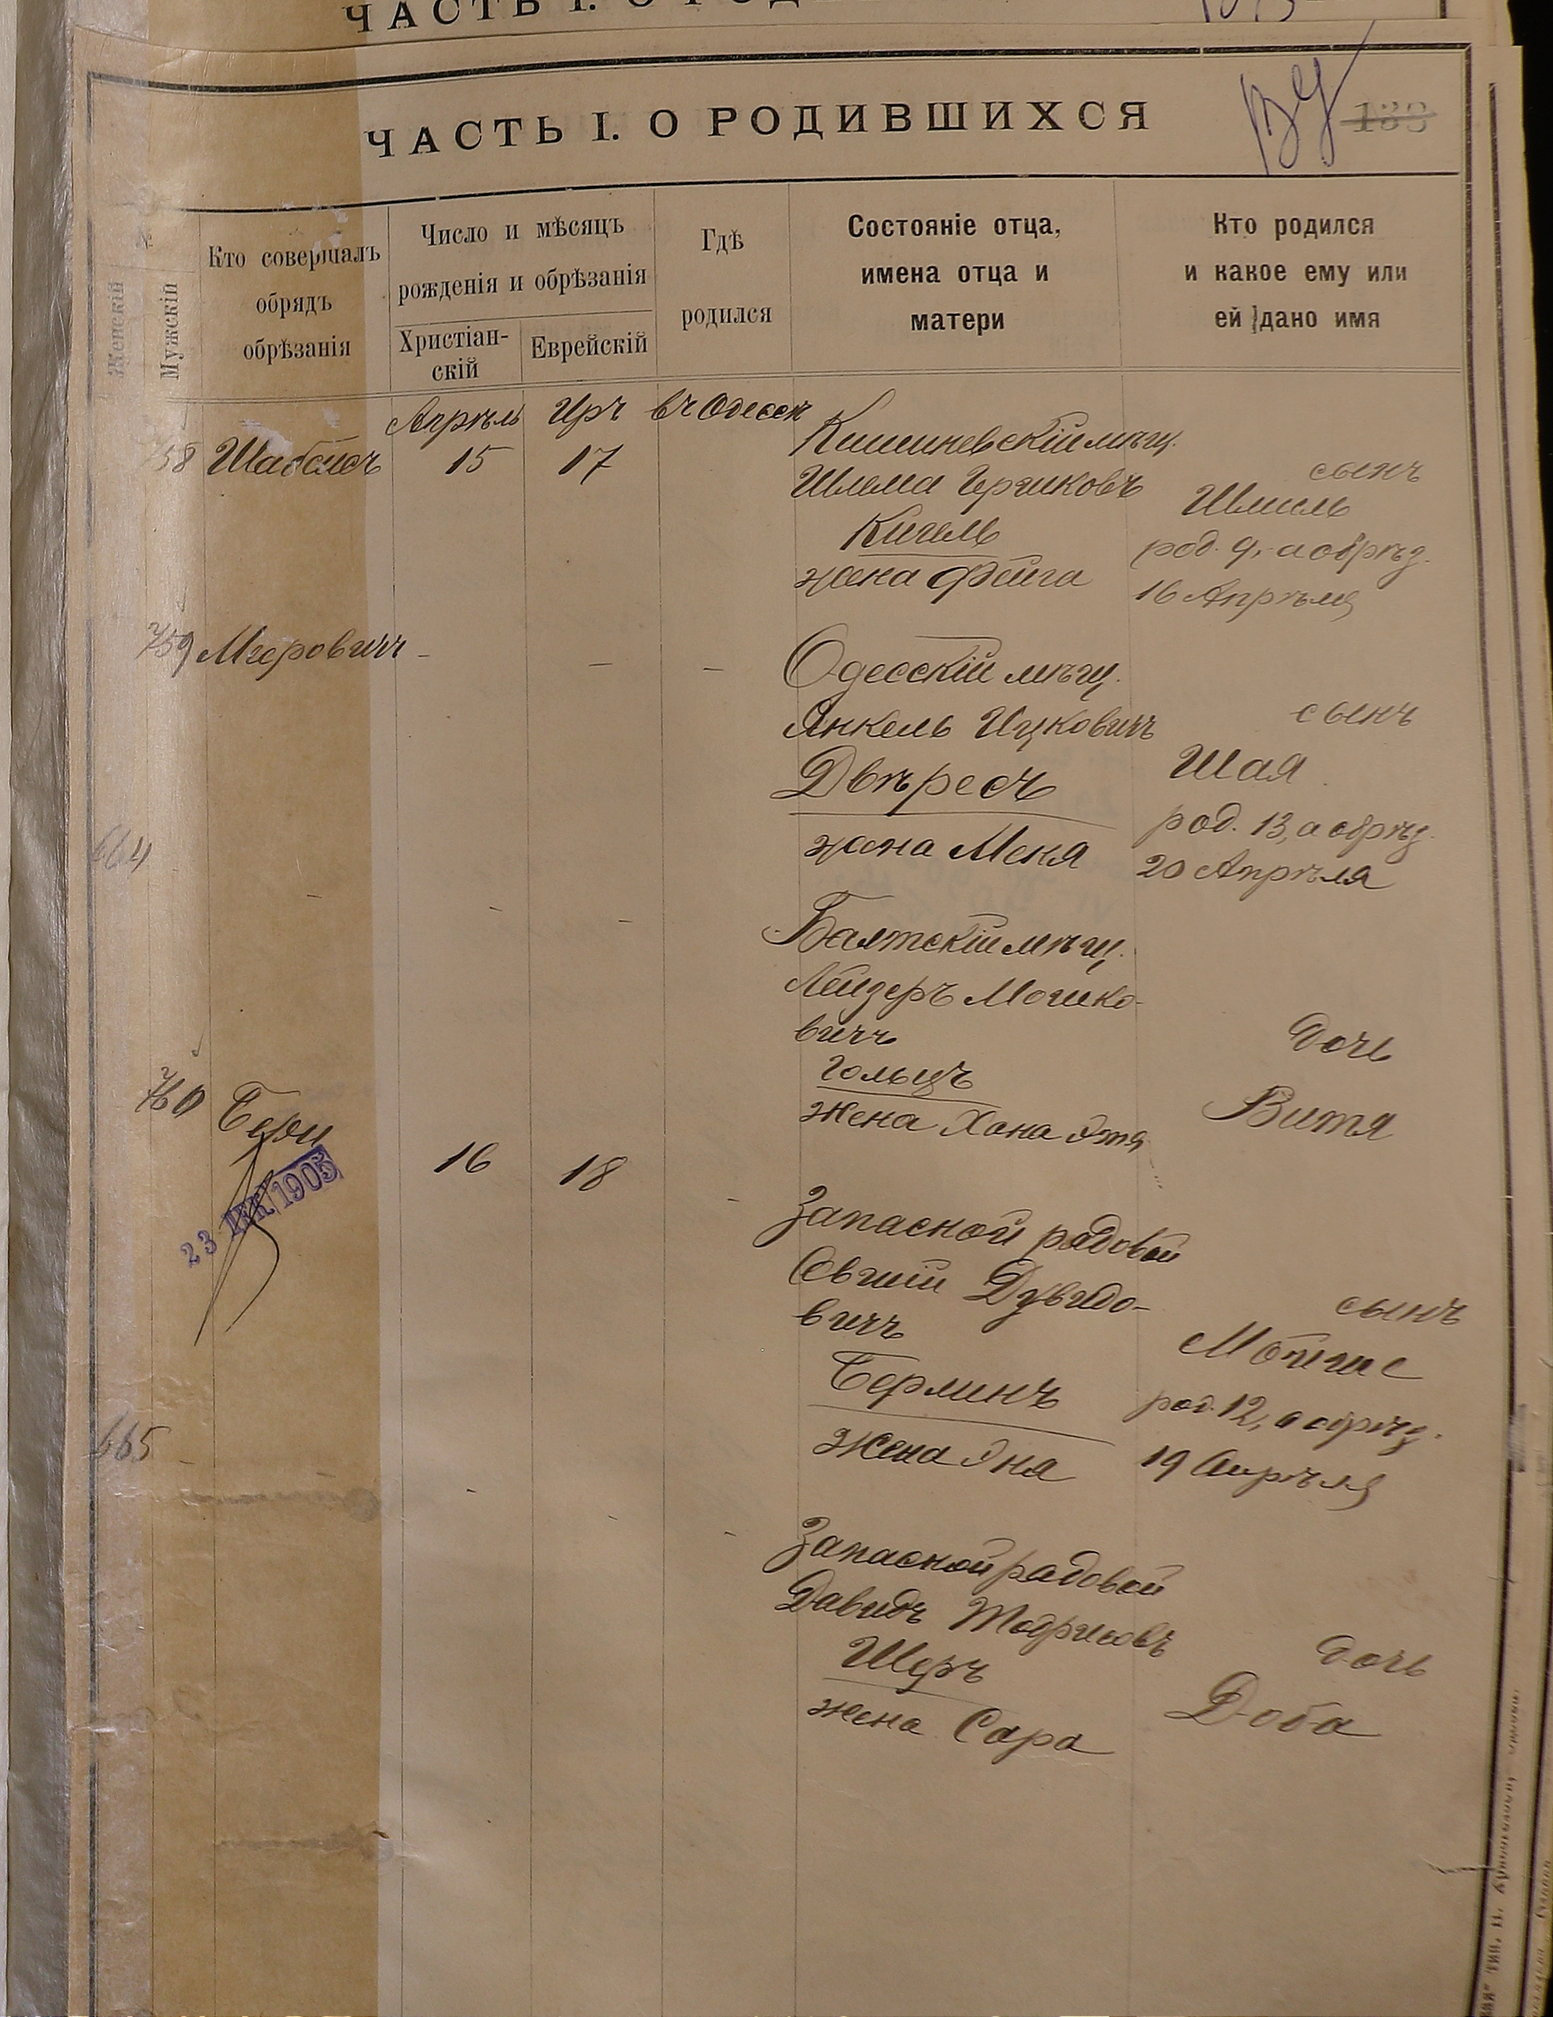 ЧАСТЬ I. О РОДИВШИХСЯ
133
№
Женскій
Мужскій
Кто совершалъ
обрядъ
обрѣзанія
Число и мѣсяцъ
рожденія и обрѣзанія
Христіан-
скій
Еврейскій
Гдѣ
родился
Состояніе отца,
имена отца и
матери
Кто родился
и какое ему или
ей дано имя
Апрѣль Иръ въ Одессѣ
758 15 17
Кишиневскій мѣщ.
Шлема Гершковъ
Кигель
жена Фейга
сынъ
Шмиль
род. 9, а обрѣз.
16 Апрѣля
759 Меерович - - -
Одесскій мѣщ.
Янкель Ицковичъ
Двѣресъ
жена Меня
сынъ
Шая
род. 13, а обрѣз.
20 Апрѣля
664 - - -
Балтскій мѣщ.
Лейзеръ Мошко-
вичъ
Гольцъ
жена Хана Этя
дочь
Витя
760 16 18 -
23 ДЕК 1905
Запасной рядовой
Овшій Дувидо-
вичъ
Берлинъ
жена Эня
сынъ
род. 12, а обрѣз.
19 Апрѣля
665 - - - -
Запасной рядовой
Давидъ Тодрисовъ
Шеръ
жена Сара
дочь
Доба